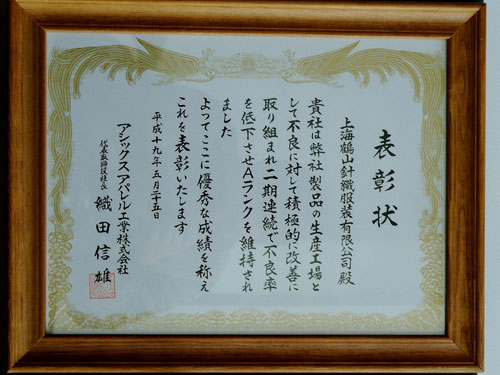 表彰状
上海鶴山針織服装有限公司殿
貴社は弊社製品の生産工場と
して不良に対して積極的に改善に
取り組まれ二期連続で不良率
を低下させAランクを維持され
ました
よってここに優秀な成績を称え
これを表彰いたします
平成十九年五月二十五日
アシックスアパレル工業株式会社
代表取締役社長 織田信雄